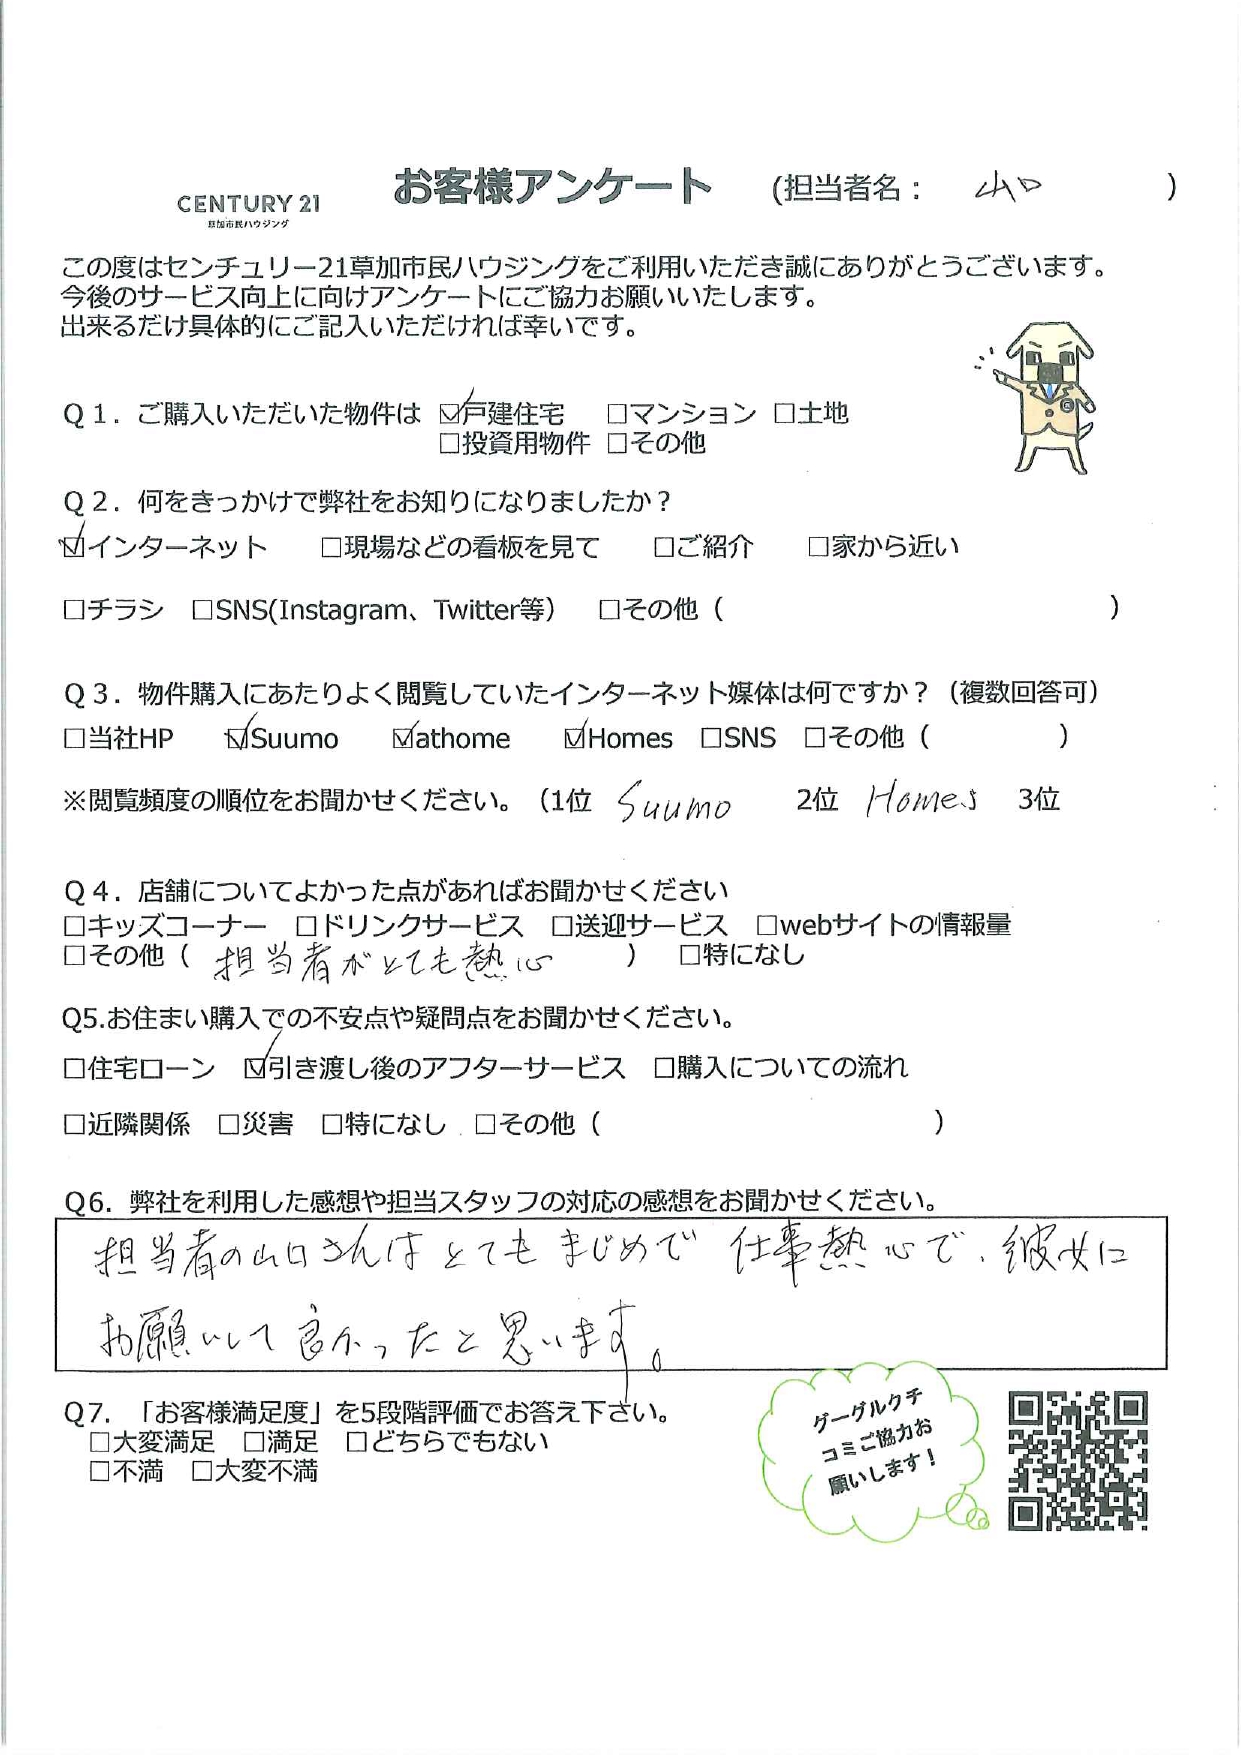 CENTURY 21
草加市民ハウジング
お客様アンケート (担当者名： 山口 )
この度はセンチュリー21草加市民ハウジングをご利用いただき誠にありがとうございます。
今後のサービス向上に向けアンケートにご協力お願いいたします。
出来るだけ具体的にご記入いただければ幸いです。
Ｑ１．ご購入いただいた物件は ☑戸建住宅 □マンション □土地
□投資用物件 □その他
Ｑ２．何をきっかけで弊社をお知りになりましたか？
☑インターネット □現場などの看板を見て □ご紹介 □家から近い
□チラシ □SNS(Instagram、Twitter等） □その他（ ）
Ｑ３．物件購入にあたりよく閲覧していたインターネット媒体は何ですか？（複数回答可）
□当社HP ☑Suumo ☑athome ☑Homes □SNS □その他（ ）
※閲覧頻度の順位をお聞かせください。（1位 Suumo 2位 Homes 3位
Ｑ４．店舗についてよかった点があればお聞かせください
□キッズコーナー □ドリンクサービス □送迎サービス □webサイトの情報量
□その他（ 担当者がとても熱心 ） □特になし
Q5.お住まい購入での不安点や疑問点をお聞かせください。
□住宅ローン ☑引き渡し後のアフターサービス □購入についての流れ
□近隣関係 □災害 □特になし □その他（ ）
Q6．弊社を利用した感想や担当スタッフの対応の感想をお聞かせください。
担当者の山口さんはとてもまじめで 仕事熱心で、彼女に
お願いして良かったと思います。
Q7．「お客様満足度」を5段階評価でお答え下さい。
□大変満足 □満足 □どちらでもない
□不満 □大変不満
グーグルクチ
コミご協力お
願いします！